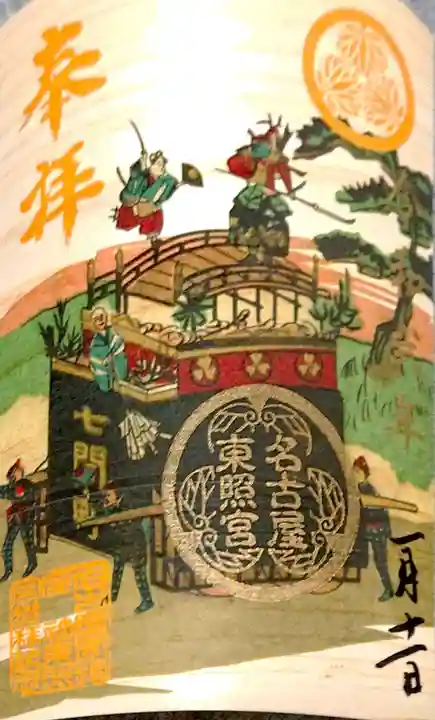 奉拝
七間町
名古屋
東照宮
一月十一日